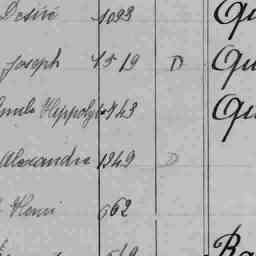 Désiré 1093 Qu
Joseph 1519 D Qu
Emile Hippolyte 743 Qu
Alexandre 1249 D
Henri 662
Ba